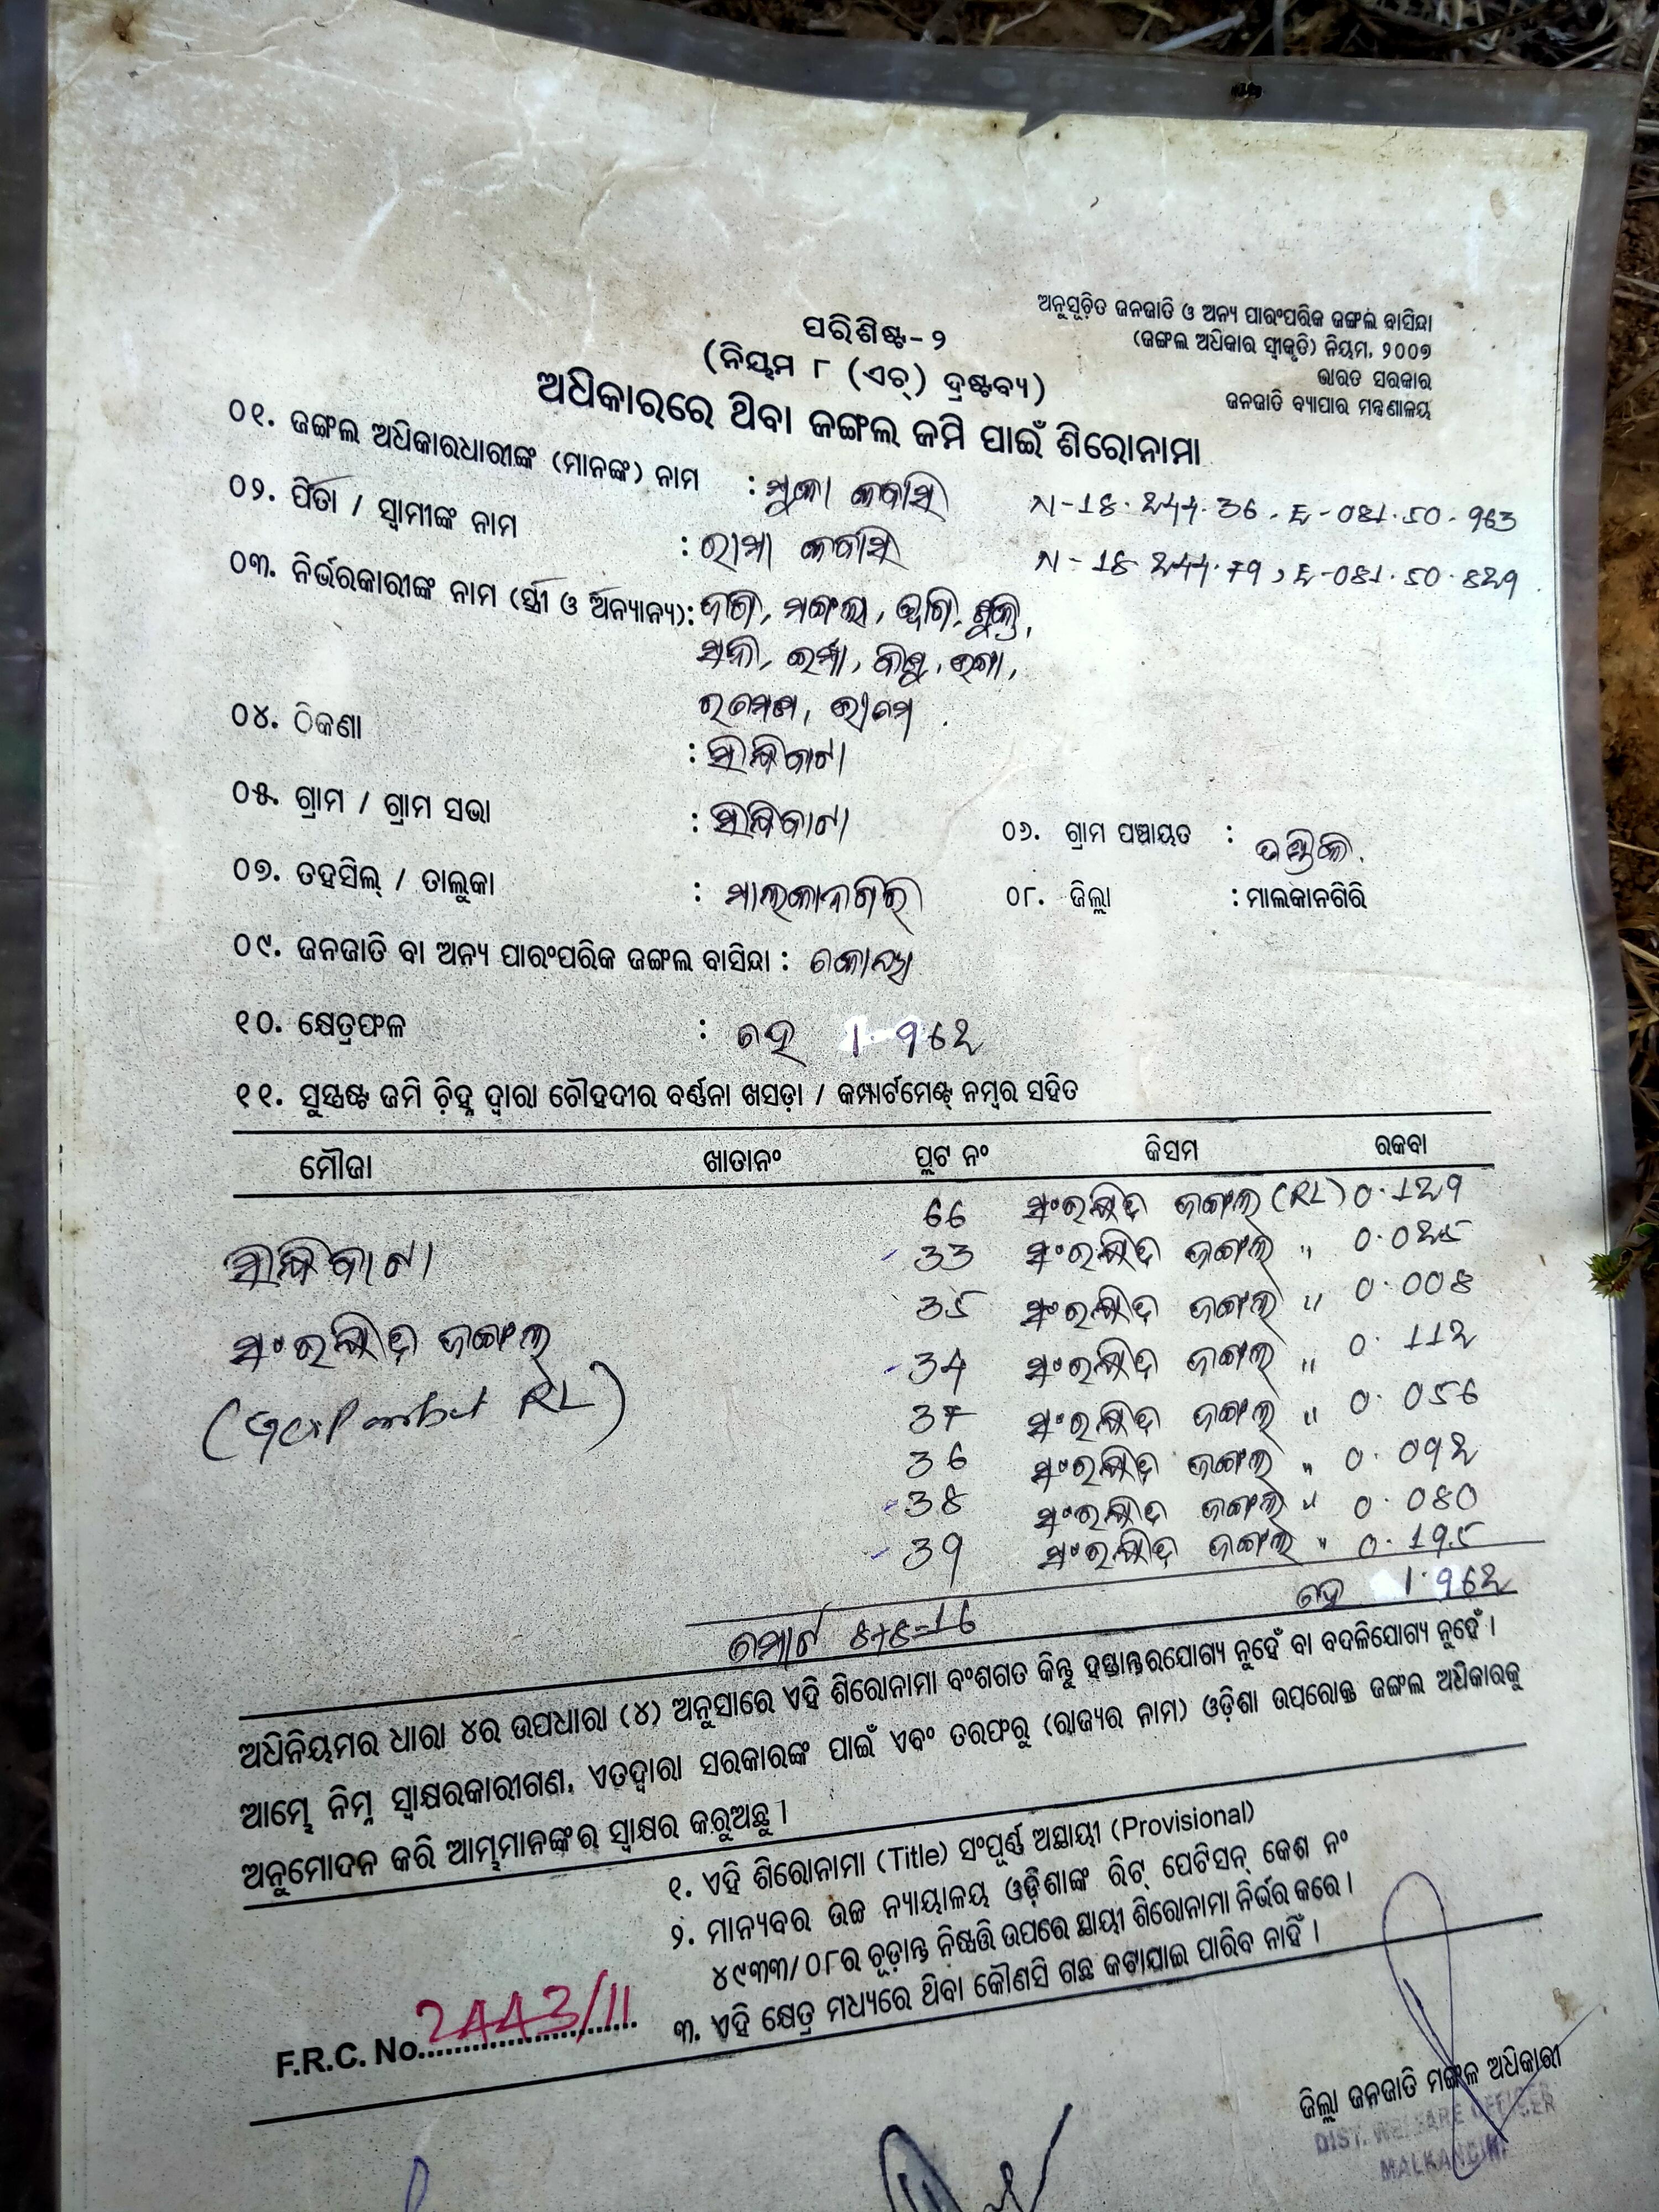 ଅନୁସୂଚିତ ଜନଜାତି ଓ ଅନ୍ୟ ପାରଂପରିକ ଜଙ୍ଗଲ ବାସିନ୍ଦା
(ଜଙ୍ଗଲ ଅଧିକାର ସ୍ୱୀକୃତି) ନିୟମ, ୨୦୦୭
ଭାରତ ସରକାର
ଜନଜାତି ବ୍ୟାପାର ମନ୍ତ୍ରଣାଳୟ
ପରିଶିଷ୍ଟ-୨
(ନିୟମ ୮ (ଏଚ୍) ଦ୍ରଷ୍ଟବ୍ୟ)
ଅଧିକାରରେ ଥିବା ଜଙ୍ଗଲ ଜମି ପାଇଁ ଶିରୋନାମା
୦୧. ଜଙ୍ଗଲ ଅଧିକାରଧାରୀଙ୍କ (ମାନଙ୍କ) ନାମ : ମୁକା କବାସି N-18.244.36, E-081.50.963
୦୨. ପିତା / ସ୍ୱାମୀଙ୍କ ନାମ : ରାମା କବାସି N-18 244.79, E-081.50.829
୦୩. ନିର୍ଭରକାରୀଙ୍କ ନାମ (ସ୍ତ୍ରୀ ଓ ଅନ୍ୟାନ୍ୟ):
୦୪. ଠିକଣା :
୦୫. ଗ୍ରାମ / ଗ୍ରାମ ସଭା : ୦୬. ଗ୍ରାମ ପଞ୍ଚାୟତ :
୦୭. ତହସିଲ୍ / ତାଲୁକା : ମାଲକାନଗିରି ୦୮. ଜିଲ୍ଲା : ମାଲକାନଗିରି
୦୯. ଜନଜାତି ବା ଅନ୍ୟ ପାରଂପରିକ ଜଙ୍ଗଲ ବାସିନ୍ଦା : କୋୟା
୧୦. କ୍ଷେତ୍ରଫଳ : ହେ 1.962
୧୧. ସୁସ୍ପଷ୍ଟ ଜମି ଚିହ୍ନ ଦ୍ୱାରା ଚୌହଦୀର ବର୍ଣ୍ଣନା ଖସଡ଼ା / କମ୍ପାର୍ଟମେଣ୍ଟ୍ ନମ୍ବର ସହିତ
ମୌଜା ଖାତାନଂ ପ୍ଲଟ ନଂ କିସମ ରକବା
66 ସଂରକ୍ଷିତ ଜଙ୍ଗଲ (RL) 0.129
33 ସଂରକ୍ଷିତ ଜଙ୍ଗଲ " 0.025
35 ସଂରକ୍ଷିତ ଜଙ୍ଗଲ " 0.008
ସଂରକ୍ଷିତ ଜଙ୍ଗଲ 34 ସଂରକ୍ଷିତ ଜଙ୍ଗଲ " 0.112
RL) 37 ସଂରକ୍ଷିତ ଜଙ୍ଗଲ " 0.056
36 ସଂରକ୍ଷିତ ଜଙ୍ଗଲ " 0.092
38 ସଂରକ୍ଷିତ ଜଙ୍ଗଲ " 0.080
39 ସଂରକ୍ଷିତ ଜଙ୍ଗଲ " 0.195
ମୋଟ 8+8=16 ହେ 1.962
ଅଧିନିୟମର ଧାରା ୪ର ଉପଧାରା (୪) ଅନୁସାରେ ଏହି ଶିରୋନାମା ବଂଶଗତ କିନ୍ତୁ ହସ୍ତାନ୍ତରଯୋଗ୍ୟ ନୁହେଁ ବା ବଦଳିଯୋଗ୍ୟ ନୁହେଁ ।
ଆମ୍ଭେ ନିମ୍ନ ସ୍ୱାକ୍ଷରକାରୀଗଣ, ଏତଦ୍ୱାରା ସରକାରଙ୍କ ପାଇଁ ଏବଂ ତରଫରୁ (ରାଜ୍ୟର ନାମ) ଓଡ଼ିଶା ଉପରୋକ୍ତ ଜଙ୍ଗଲ ଅଧିକାରକୁ
ଅନୁମୋଦନ କରି ଆମ୍ଭମାନଙ୍କର ସ୍ୱାକ୍ଷର କରୁଅଛୁ ।
୧. ଏହି ଶିରୋନାମା (Title) ସଂପୂର୍ଣ୍ଣ ଅସ୍ଥାୟୀ (Provisional)
୨. ମାନ୍ୟବର ଉଚ୍ଚ ନ୍ୟାୟାଳୟ ଓଡ଼ିଶାଙ୍କ ରିଟ୍ ପେଟିସନ୍ କେଶ ନଂ
୪୯୩୩/୦୮ର ଚୂଡ଼ାନ୍ତ ନିଷ୍ପତ୍ତି ଉପରେ ସ୍ଥାୟୀ ଶିରୋନାମା ନିର୍ଭର କରେ ।
୩. ଏହି କ୍ଷେତ୍ର ମଧ୍ୟରେ ଥିବା କୌଣସି ଗଛ କଟାଯାଇ ପାରିବ ନାହିଁ ।
F.R.C. No. 2443/11
ଜିଲ୍ଲା ଜନଜାତି ମଙ୍ଗଳ ଅଧିକାରୀ
DIST. WELFARE OFFICER
MALKANGIRI